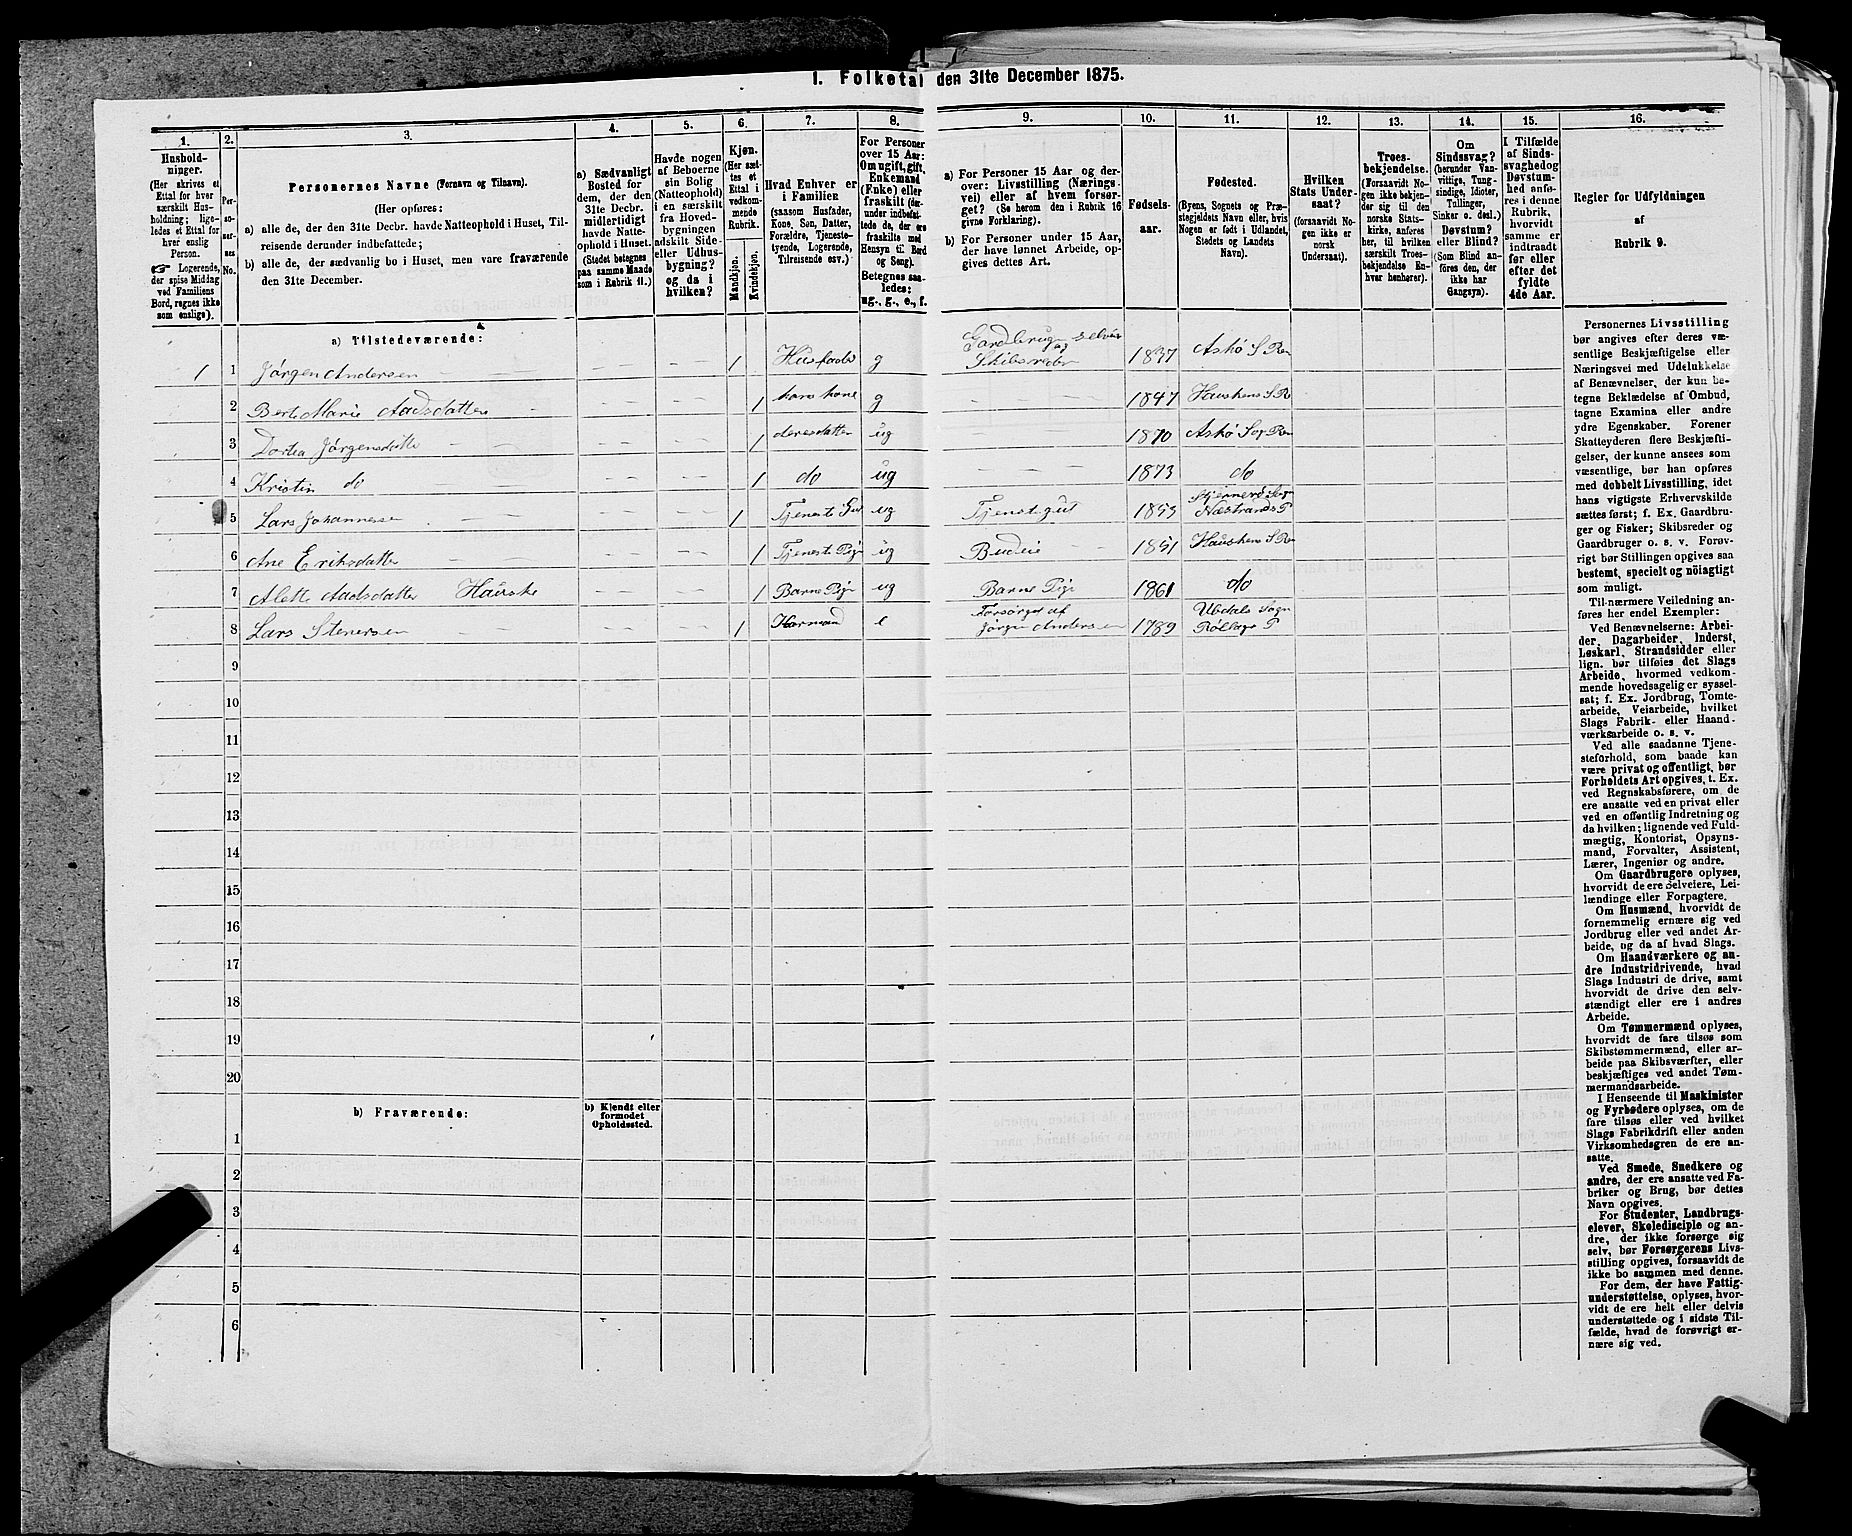 I. Folketal den 31te December 1875.
1. 2. 3. 4. 5. 6. 7. 8. 9. 10. 11. 12. 13. 14. 15. 16.
Hushold-
ninger.
(Her skrives et
Ettal for hver
særskilt Hus-
holdning; lige-
ledes et Ettal for
hver enslig
Person.
☞ Logerende,
der spise Middag
ved Familiens
Bord, regnes ikke
som enslige).
Per-
so-
ner-
nes
No.
Personernes Navne (Fornavn og Tilnavn).
(Her opføres:
a) alle de, der den 31te Decbr. havde Natteophold i Huset, Til-
reisende derunder indbefattede;
b) alle de, der sædvanlig bo i Huset, men vare fraværende
den 31te December.
a) Sædvanligt
Bosted for
dem, der den
31te Decbr.
midlertidigt
havde Natte-
ophold i Huset.
(Stedet betegnes
paa samme Maade
som i Rubrik 11.)
Havde nogen
af Beboerne
sin Bolig
(Natteophold)
i en særskilt
fra Hoved-
bygningen
adskilt Side-
eller Udhus-
bygning?
og da i
hvilken?
Kjøn.
(Her sæt-
tes et
Ettal i
vedkom-
mende
Rubrik.
Mandkjøn.
Kvindekjøn.
Hvad Enhver er
i Familien
(saasom Husfader,
Kone, Søn, Datter,
Forældre, Tjeneste-
tyende, Logerende,
Tilreisende osv.)
For Personer
over 15 Aar:
Om ugift, gift,
Enkemand
(Enke) eller
fraskilt (der-
under indbefat-
tede de, der ere
fraskilte med
Hensyn til Bord
og Seng).
Betegnes saa-
ledes:
ug., g., e., f.
a) For Personer 15 Aar og der-
over: Livsstilling (Nærings-
vei) eller af hvem forsør-
get? (Se herom den i Rubrik 16
givne Forklaring).
b) For Personer under 15 Aar,
der have lønnet Arbeide, op-
gives dettes Art.
Fødsels-
aar.
Fødested.
(Byens, Sognets og Præ-
stegjeldets Navn eller, hvis
Nogen er født i Udlandet,
Stedets og Landets
Navn).
Hvilken
Stats Under-
saat?
(forsaavidt No-
gen ikke er
norsk
Undersaat).
Troes-
bekjendelse.
(Forsaavidt No-
gen ikke bekjen-
der sig til den
norske Stats-
kirke, anføres
her, til hvilken
særskilt Troes-
bekjendelse En-
hver henhører).
Om
Sindssvag?
(herunder Van-
vittige, Tung-
sindige, Idioter,
Tullinger,
Sinker o. desl.)
Døvstum?
eller Blind?
(Som Blind an-
føres den, der
ikke har
Gangsyn).
I Tilfælde
af Sinds-
svaghed og
Døvstum-
hed anfø-
res i denne
Rubrik,
hvorvidt
samme er
indtraadt
før eller
efter det
fyldte
4de Aar.
Regler for Udfyldningen
af
Rubrik 9.
a) Tilstedeværende:
1 1 Jørgen Andersen 1 g Gardbruger selveier og 1837 Askø
2 Berte Marie Aadsdatter 1 hans kone g 1847 Hauskens S Re
3 Dortea Jørgensdatte 1 deres datter ug 1870 Askø Sog Ren
4 Kristin do 1 do ug 1873 do
5 Lars Johannesen 1 Tjeneste Gut ug Tjenstegut 1853 Sogn Næstrands P
6 Ane Eriksdatter 1 Tjeneste Pige ug Budeie 1851 Hauskens S Ren
7 Alette Aadsdatter Hauske 1 Barne Pige ug Barne Pige 1861 do
8 Lars Stenersen 1 e Forsørges af Jørgen Andersen 1789 Sogn Rollags P
9
10
11
12
13
14
15
16
17
18
19
20
b) Fraværende:
b) Kjendt eller
formodet
Opholdssted.
1
2
3
4
5
6
Personernes Livsstilling
bør angives efter deres væ-
sentlige Beskjæftigelse eller
Næringsvei med Udelukkelse
af Benævnelser, der kun be-
tegne Beklædelse af Ombud,
tagne Examina eller andre
ydre Egenskaber. Forener
Skatteyderen flere Beskjæfti-
gelser, der kunne ansees som
væsentlige, bør han opføres
med dobbelt Livsstilling, idet
hans vigtigste Erhvervskilde
sættes først; f. Ex. Gaardbru-
ger og Fisker; Skibsreder og
Gaardbruger o. s. v. Forøv-
rigt bør Stillingen opgives saa
bestemt, specielt og nöiagtigt
som muligt.
Til nærmere Veiledning an-
føres her endel Exempler:
Ved Benævnelserne: Arbei-
der, Dagarbeider, Inderst,
Løskarl, Strandsidder eller
lign. bør tilføies det Slags
Arbeide, hvormed vedkom-
mende hovedsagelig er syssel-
sat; f. Ex. Jordbrug, Tomte-
arbeide, Veiarbeide, hvilket
Slags Fabrik- eller Haand-
værksarbeide o. s. v.
Ved alle saadanne Tjene-
steforhold, som baade kan
være privat og offentligt, bør
Forholdets Art opgives, t. Ex.
ved Regnskabsførere, om de
ere ansatte ved en privat eller
ved en offentlig Indretning og
da hvilken; lignende ved Fuld-
mægtig, Kontorist, Opsyns-
mand, Forvalter, Assistent,
Lærer, Ingeniør og andre.
Om Gaardbrugere oplyses,
hvorvidt de ere Selveiere, Lei-
lændinge eller Forpagtere.
Om Husmænd, hvorvidt de
fornemmelig ernære sig ved
Jordbrug eller ved andet Ar-
beide, og da af hvad Slags.
Om Haandværkere og an-
dre Industridrivende, hvad
Slags Industri de drive, samt
hvorvidt de drive den selv-
stændigt eller ere i andres
Arbeide.
Om Tømmermænd oplyses,
hvorvidt de fare tilsøs som
Skibstømmermænd, eller ar-
beide paa Skibsværfter, eller
beskjæftiges ved andet Tøm-
mermandsarbeide.
I Henseende til Maskinister
og Fyrbødere oplyses, om de
fare tilsøs eller ved hvilket
Slags Fabrikdrift eller anden
Virksomhedsgren de ere an-
satte.
Ved Smede, Snedkere og
andre, der ere ansatte ved Fa-
briker og Brug, bør dettes
Navn opgives.
For Studenter, Landbrugs-
elever, Skoledisciple og an-
dre, der ikke forsørge sig
selv, bør Forsørgerens Livs-
stilling opgives, forsaavidt de
ikke bo sammen med denne.
For dem, der have Fattig-
understøttelse, oplyses, hvor-
vidt de ere helt eller delvis
understøttede og i sidste Til-
fælde, hvad de forøvrigt er-
nære sig ved.